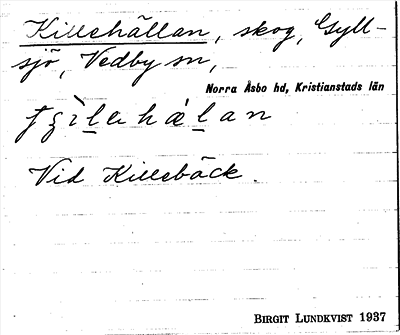 Killehällan, skog, Gyll-
sjö, Vedby sn,
Norra Åsbo hd, Kristianstads län
Vid Killebäck.
BIRGIT LUNDKVIST 1937